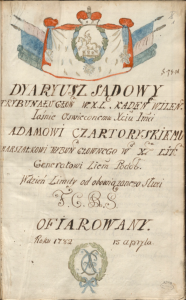 DYARIUSZ SĄDOWY
TRYBUNAŁU GŁÓW W.X.L. KADEN. WILEN.
Jaśnie Oświeconemu Xciu Jmci
ADAMOWI CZARTORYSKIEMU
MARSZAŁKOWI TRYBUN GŁOWNEGO W. X. LITT.
Generałowi Ziem Podol.
W dzień Limity od obowiązanego Sługi
OFIAROWANY.
Roku 1782 15 apryla.